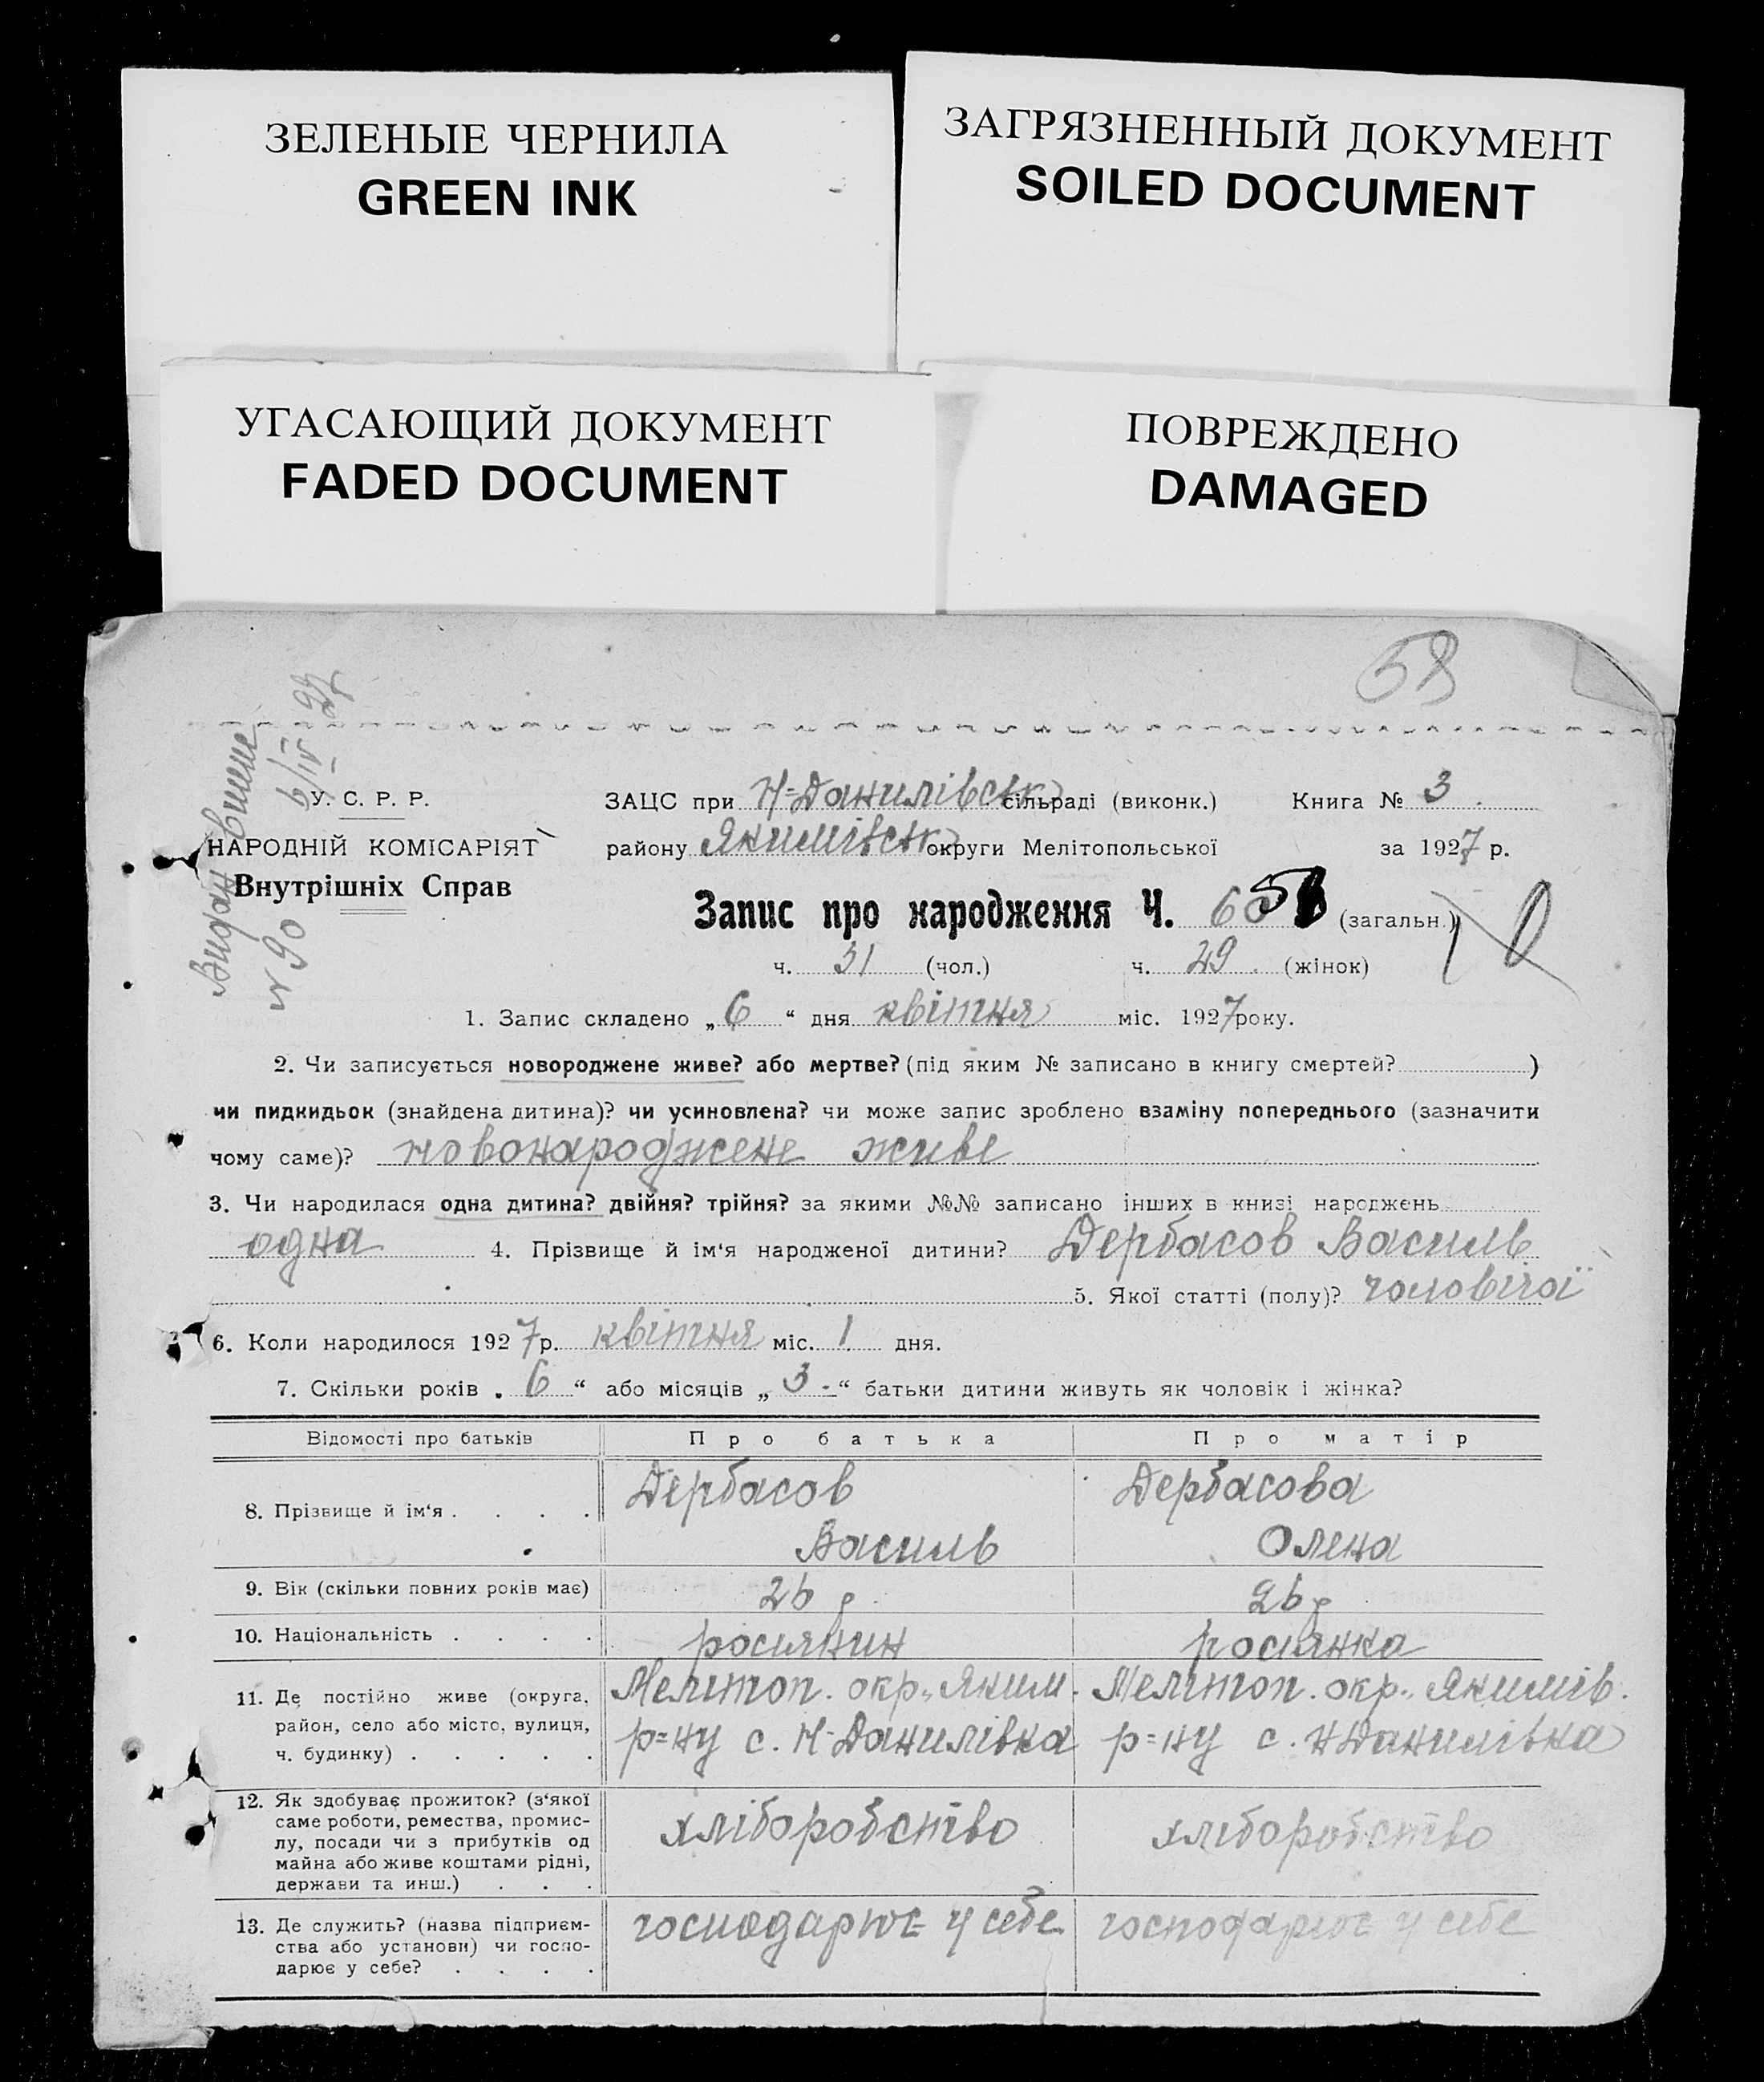 ЗЕЛЕНЫЕ ЧЕРНИЛА
GREEN INK
ЗАГРЯЗНЕННЫЙ ДОКУМЕНТ
SOILED DOCUMENT
УГАСАЮЩИЙ ДОКУМЕНТ
FADED DOCUMENT
ПОВРЕЖДЕНО
DAMAGED
58
Видан
№ 90 6/IV 27
У. С. Р. Р.
НАРОДНІЙ КОМІСАРІЯТ
Внутрішніх Справ
ЗАЦС при Н-Данилівськ сільраді (виконк.) Книга № 3
району Якимівськ округи Мелітопольської за 1927 р.
Запис про народження Ч. 60 58 (загальн.)
ч. 31 (чол.) ч. 29 (жінок)
1. Запис складено „6“ дня квітня міс. 1927 року.
2. Чи записується новороджене живе? або мертве? (під яким № записано в книгу смертей? )
чи пидкидьок (знайдена дитина)? чи усиновлена? чи може запис зроблено взаміну попереднього (зазначити
чому саме)? новонароджене живе
3. Чи народилася одна дитина? двійня? трійня? за якими №№ записано інших в книзі народжень
одна 4. Прізвище й ім'я народженої дитини? Дербасов Василь
5. Якої статті (полу)? чоловічої
6. Коли народилося 1927 р. квітня міс. 1 дня.
7. Скільки років „6“ або місяців „3-“ батьки дитини живуть як чоловік і жінка?
Відомості про батьків Про батька Про матір
8. Прізвище й ім'я . . . . Дербасов Дербасова
Василь Олена
9. Вік (скільки повних років має) 26 р. 26 р
10. Національність . . . . росиянин росиянка
11. Де постійно живе (округа, Мелітоп. окр., Яким. Мелітоп. окр., Якимів.
район, село або місто, вулиця, р=ну с. Н-Данилівка р=ну с. Н Данилівка
ч. будинку) . . . . .
12. Як здобуває прожиток? (з'якої
саме роботи, ремества, промис-
лу, посади чи з прибутків од хліборобство хліборобство
майна або живе коштами рідні,
держави та инш.) . . .
13. Де служить? (назва підприєм- господарює у себе господарює у себе
ства або установи) чи госпо-
дарює у себе? . . . .